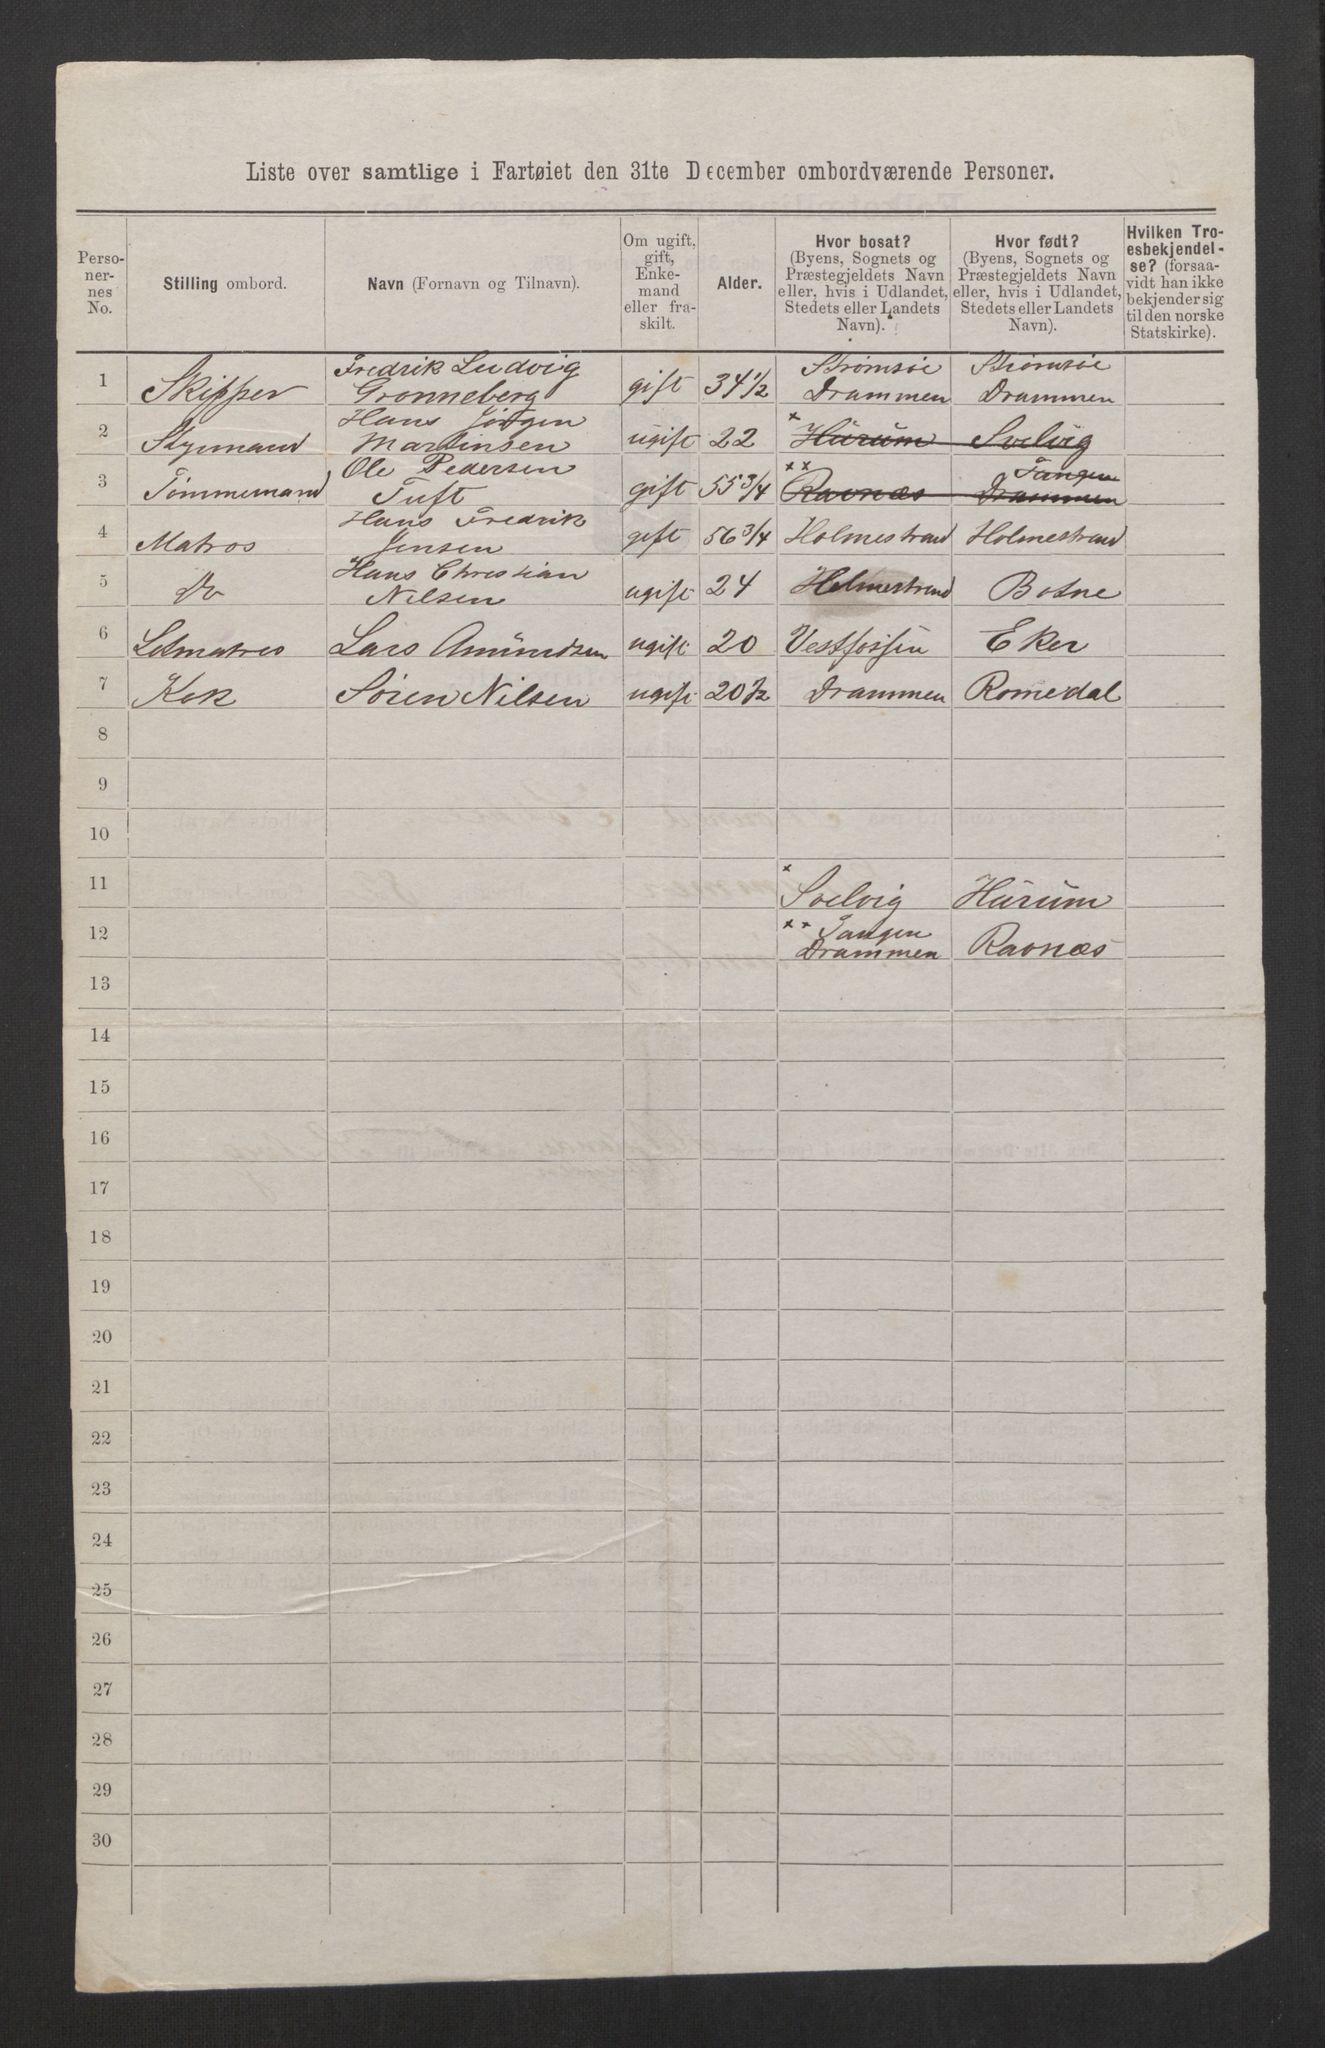 Liste over samtlige i Fartøiet den 31te December ombordværende Personer.
Perso-
ner-
nes
No.
Stilling ombord.
Navn (Fornavn og Tilnavn).
Om ugift,
gift,
Enke-
mand
eller fra-
skilt.
Alder.
Hvor bosat?
(Byens, Sognets og
Præstegjeldets Navn
eller, hvis i Udlandet,
Stedets eller Landets
Navn).
Hvor født?
(Byens, Sognets og
Præstegjeldets Navn
eller, hvis i Udlandet,
Stedets eller Landets
Navn).
Hvilken Tro-
esbekjendel-
se? (forsaa-
vidt han ikke
bekjender sig
til den norske
Statskirke).
Fredrik Ludvig Strømsøe Strømsøe
1 Skipper Gronneberg gift 34 1/2 Drammen Drammen
Hans Jørgen
2 Styrmand Martinsen ugift 22 × Hurum Svelvig
Ole Pedersen Tangen
3 Tømmermand Tuft gift 55 3/4 ×× Ravnæs Drammen
Hans Fredrik
4 Matros Jensen gift 56 3/4 Holmestrand Holmestrand
Hans Christian
5 Do Nilsen ugift 24 Holmestrand Botne
6 Letmatros Lars Amundsen ugift 20 Vestfossen Eker
7 Kok Sören Nilsen ugift 20 1/2 Drammen Romedal
8
9
10
11 × Svelvig Hurum
×× Tangen
12 Drammen Ravnæs
13
14
15
16
17
18
19
20
21
22
23
24
25
26
27
28
29
30